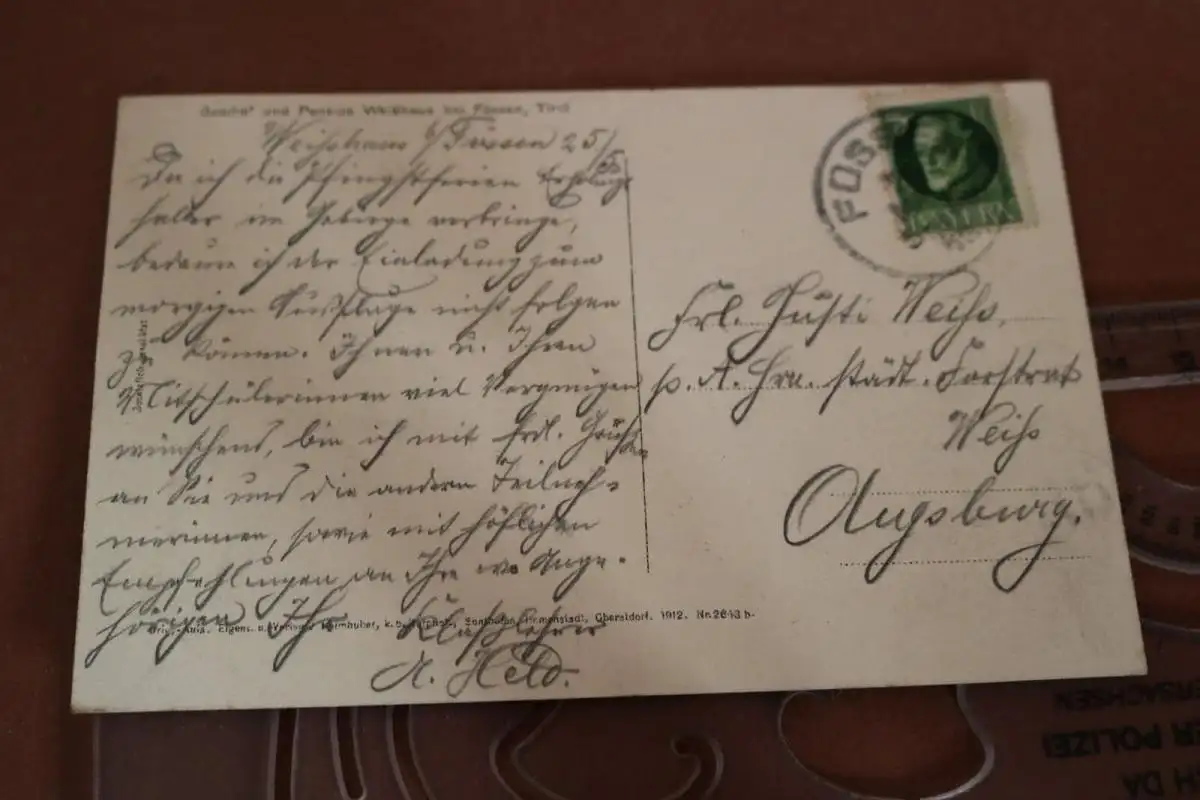 Gasthof und Pension Weißhaus bei Füssen, Tirol
Weisshaus b/Füssen 25/5
Da ich die Pfingstferien Erholungs
halber im Gebirge verbringe,
bedaure ich der Einladung zum
morgigen Ausfluge nicht folgen
zu können. Ihnen u. Ihren
Mitschülerinnen viel Vergnügen
wünschend, bin ich mit frdl. Grüßen
an Sie und die anderen Teilneh-
merinnen, sowie mit höflichen
Empfehlungen an Ihre w. Ange-
hörigen Ihr Klaßlehrer
A. Held.
Heimhuber, Sonthofen, Immenstadt, Oberstdorf. 1912. Nr. 2643 b.
BAYERN
FÜSS
Frl. Gusti Weiss,
p. A. Hrn. städt. Forstrat
Weiss
Augsburg.
ER POLIZEI
CH DA